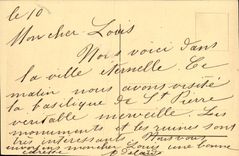 le 10
Mon cher Louis
Nous voici dans
la ville eternelle. Ce
matin nous avons visité
la basilique de St Pierre
veritable merveille. Les
monuments et les ruines sont
très interessants. Nous vous
envoyons mon cher Louis une bonne
caresse